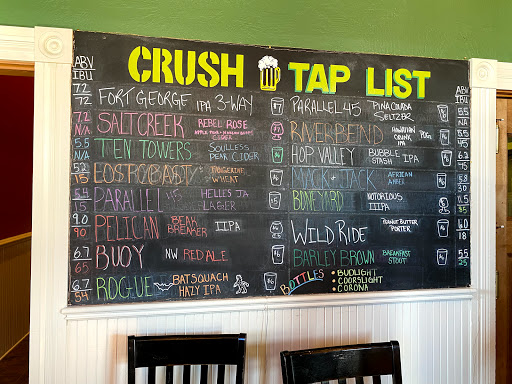 CRUSH TAP LIST
ABV
IBU
7.2
72
FORT GEORGE IPA 3-WAY
7.2
N/A
SALTCREEK REBEL ROSE
CIDER
5.5
N/A
TEN TOWERS SOULLESS
PEAK CIDER
5.2
15
LOSTCOAST TANGERINE
WHEAT
5.4
15
PARALLEL 45 HELLES JA
LAGER
9.0
90
PELICAN BEAK
BREAKER IIPA
6.7
65
BUOY NW RED ALE
6.7
54
ROGUE BATSQUACH
HAZY IPA
ABV
IBU
PARALLEL 45 PINA COLADA
SELTZER
5.5
N/A
RIVERBEND HAWAIIAN
CRUNK
IPA POG
5.5
N/A
HOP VALLEY BUBBLE
STASH IPA
6.2
45
MACK + JACK AFRICAN
AMBER
5.8
30
BONEYARD NOTORIOUS
IIIPA
11.5
35
WILD RIDE PEANUT BUTTER
PORTER
6.0
18
BARLEY BROWN BREAKFAST
STOUT
5.5
25
BOTTLES
• BUDLIGHT
• COORSLIGHT
• CORONA